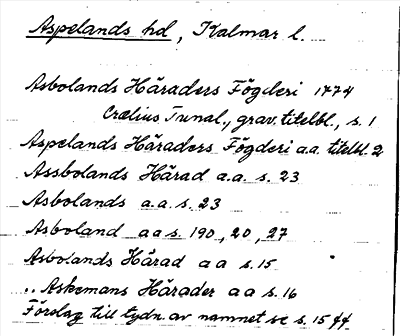 Aspelands hd, Kalmar l.
Asbolands Häraders Fögderi 1774
Crælius Tunal., grav. titelbl., s. 1
Aspelands Häraders Fögderi a.a. titelbl. 2
Assbolands Härad a.a. s. 23
Asbolands a.a. s. 23
Asboland a a s. 190, 20, 27
Asbolands Härad a a s. 15
„ Askemans Härader a a s. 16
Förslag till tydn. av namnet se s. 15 ff